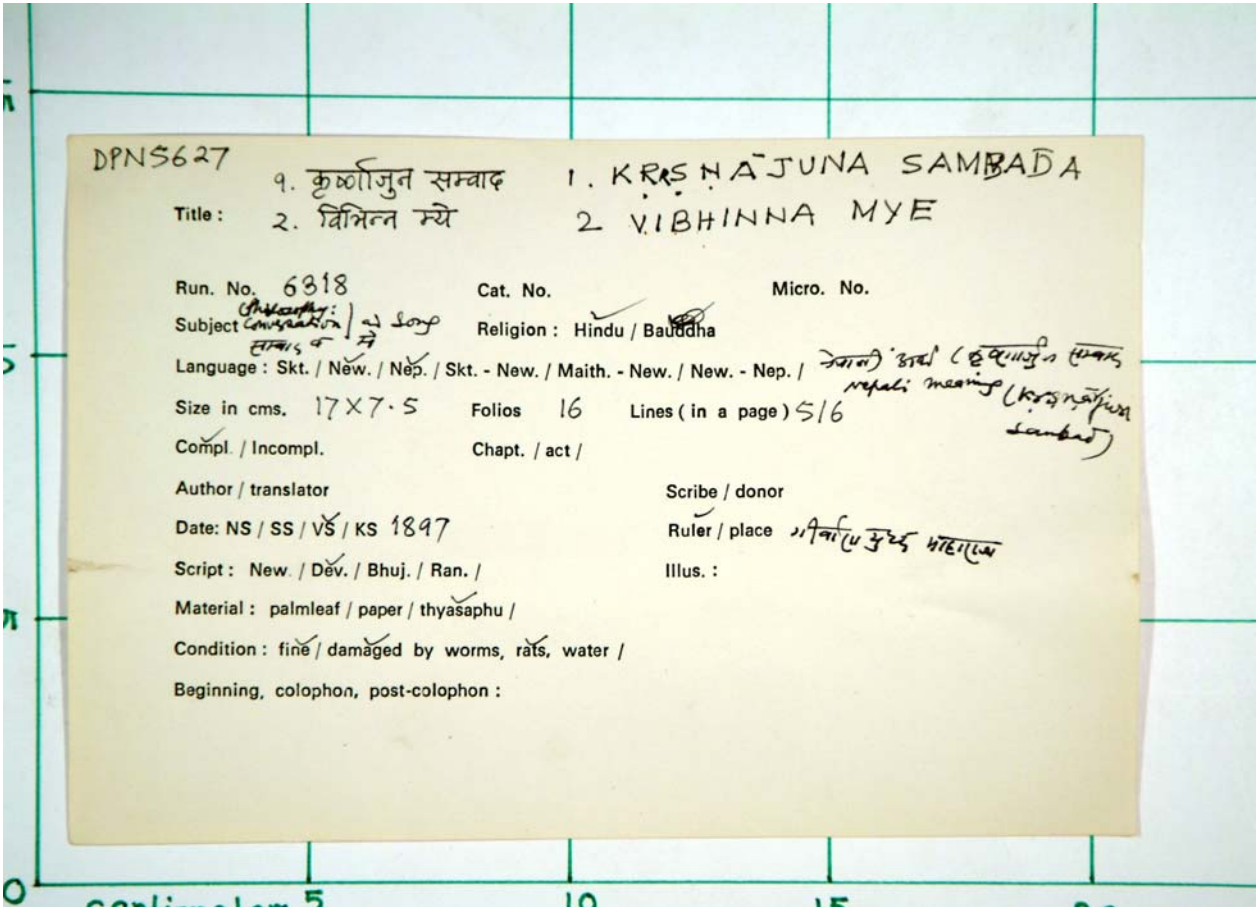 DPN5627
१. कृर्ष्णाजुन सम्वाद 1. KRṚṢṆĀJUNA SAMBĀDA
Title : २. विभिन्न म्ये 2 VIBHINNA MYE
Run. No. 6318 Cat. No. Micro. No.
Subject (Philosophy: Conversation) as Song Religion : Hindu / Bauddha
सम्वाद व मे
Language : Skt. / New. / Nep. / Skt. - New. / Maith. - New. / New. - Nep. / नेपाली अर्थ (कृष्णार्जुन सम्वाद
nepali meaning (Kṛṣṇārjuna
Size in cms. 17X7·5 Folios 16 Lines ( in a page ) 5/6
sambad)
Compl. / Incompl. Chapt. / act /
Author / translator Scribe / donor
Date: NS / SS / VS / KS 1897 Ruler / place गीर्वाण युद्ध
Script : New. / Dev. / Bhuj. / Ran. / Illus. :
Material : palmleaf / paper / thyasaphu /
Condition : fine / damaged by worms, rats, water /
Beginning, colophon, post-colophon :
0 5 10 15